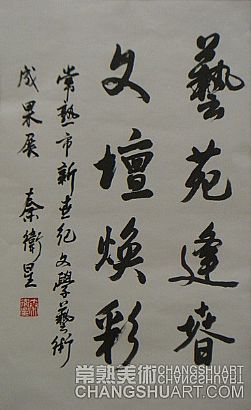 藝苑逢春
文壇煥彩
常熟市新世纪文學藝術
成果展 秦衛星
常熟美術CHANGSHUART
CHANGSHUART.COM